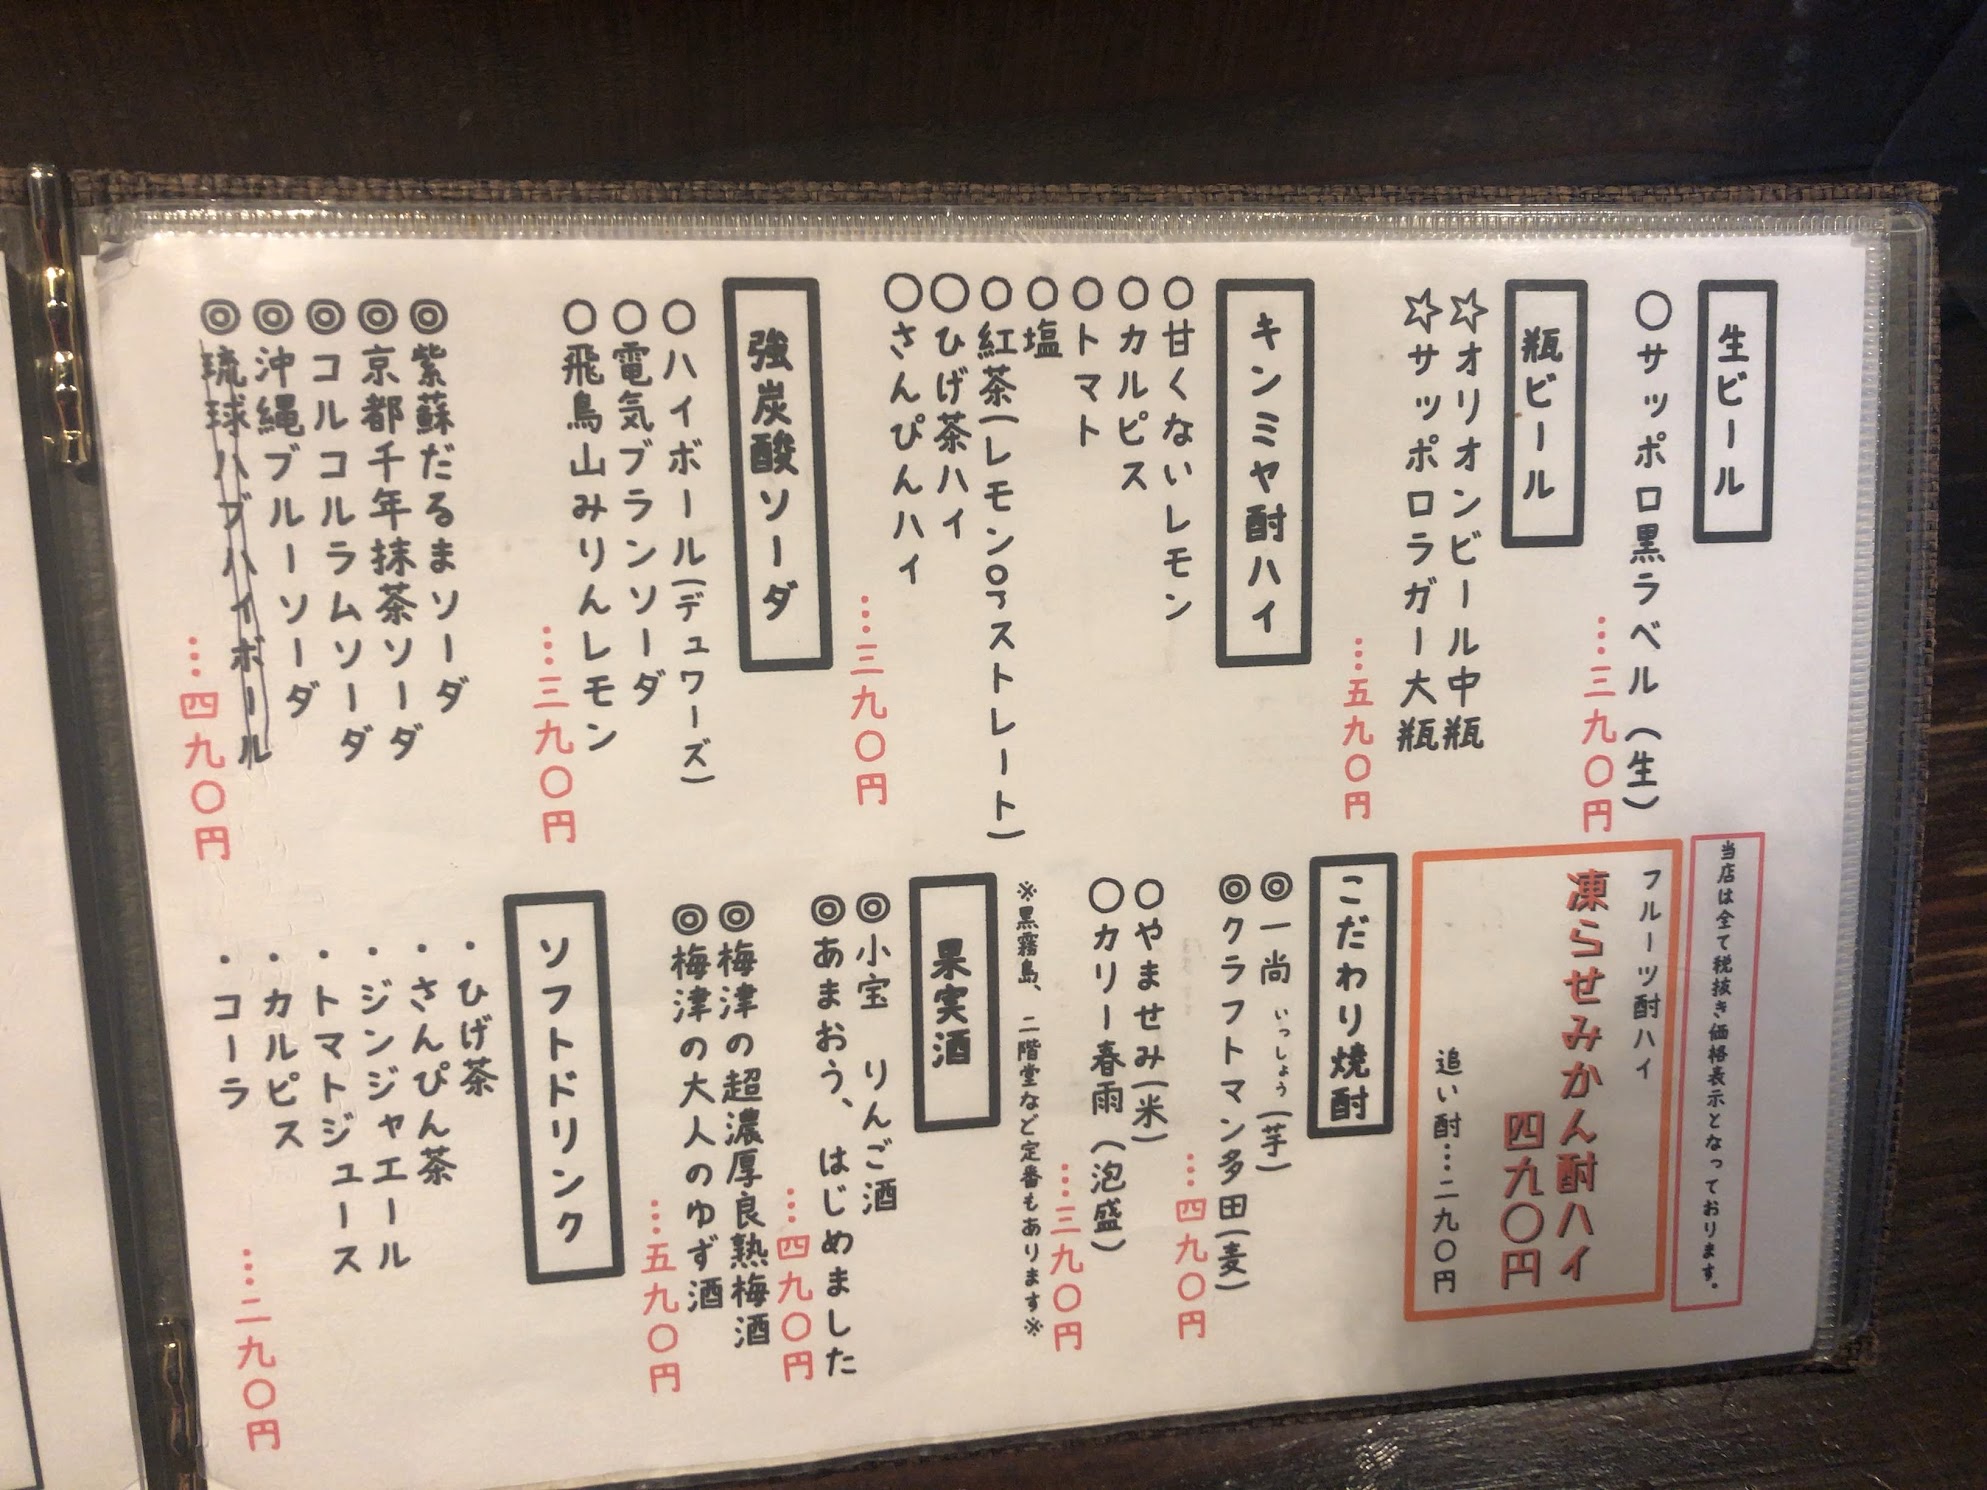 生ビール
○サッポロ黒ラベル(生)
…三九〇円
瓶ビール
☆オリオンビール中瓶
☆サッポロラガー大瓶
…五九〇円
キンミヤ酎ハイ
○甘くないレモン
○カルピス
○トマト
○塩
○紅茶(レモンorストレート)
○ひげ茶ハイ
○さんぴんハイ
…三九〇円
強炭酸ソーダ
○ハイボール(デュワーズ)
○電気ブランソーダ
○飛鳥山みりんレモン
…三九〇円
◎紫蘇だるまソーダ
◎京都千年抹茶ソーダ
◎コルコルラムソーダ
◎沖縄ブルーソーダ
◎琉球ハブハイボール
…四九〇円
当店は全て税抜き価格表示となっております。
フルーツ酎ハイ
凍らせみかん酎ハイ
四九〇円
追い酎…二九〇円
こだわり焼酎
◎一尚 いっしょう(芋)
◎クラフトマン多田(麦)
…四九〇円
○やませみ(米)
○カリー春雨(泡盛)
…三九〇円
※黒霧島、二階堂など定番もあります※
果実酒
◎小宝 りんご酒
◎あまおう、はじめました
…四九〇円
◎梅津の超濃厚良熟梅酒
◎梅津の大人のゆず酒
…五九〇円
ソフトドリンク
・ひげ茶
・さんぴん茶
・ジンジャエール
・トマトジュース
・カルピス
・コーラ
…二九〇円